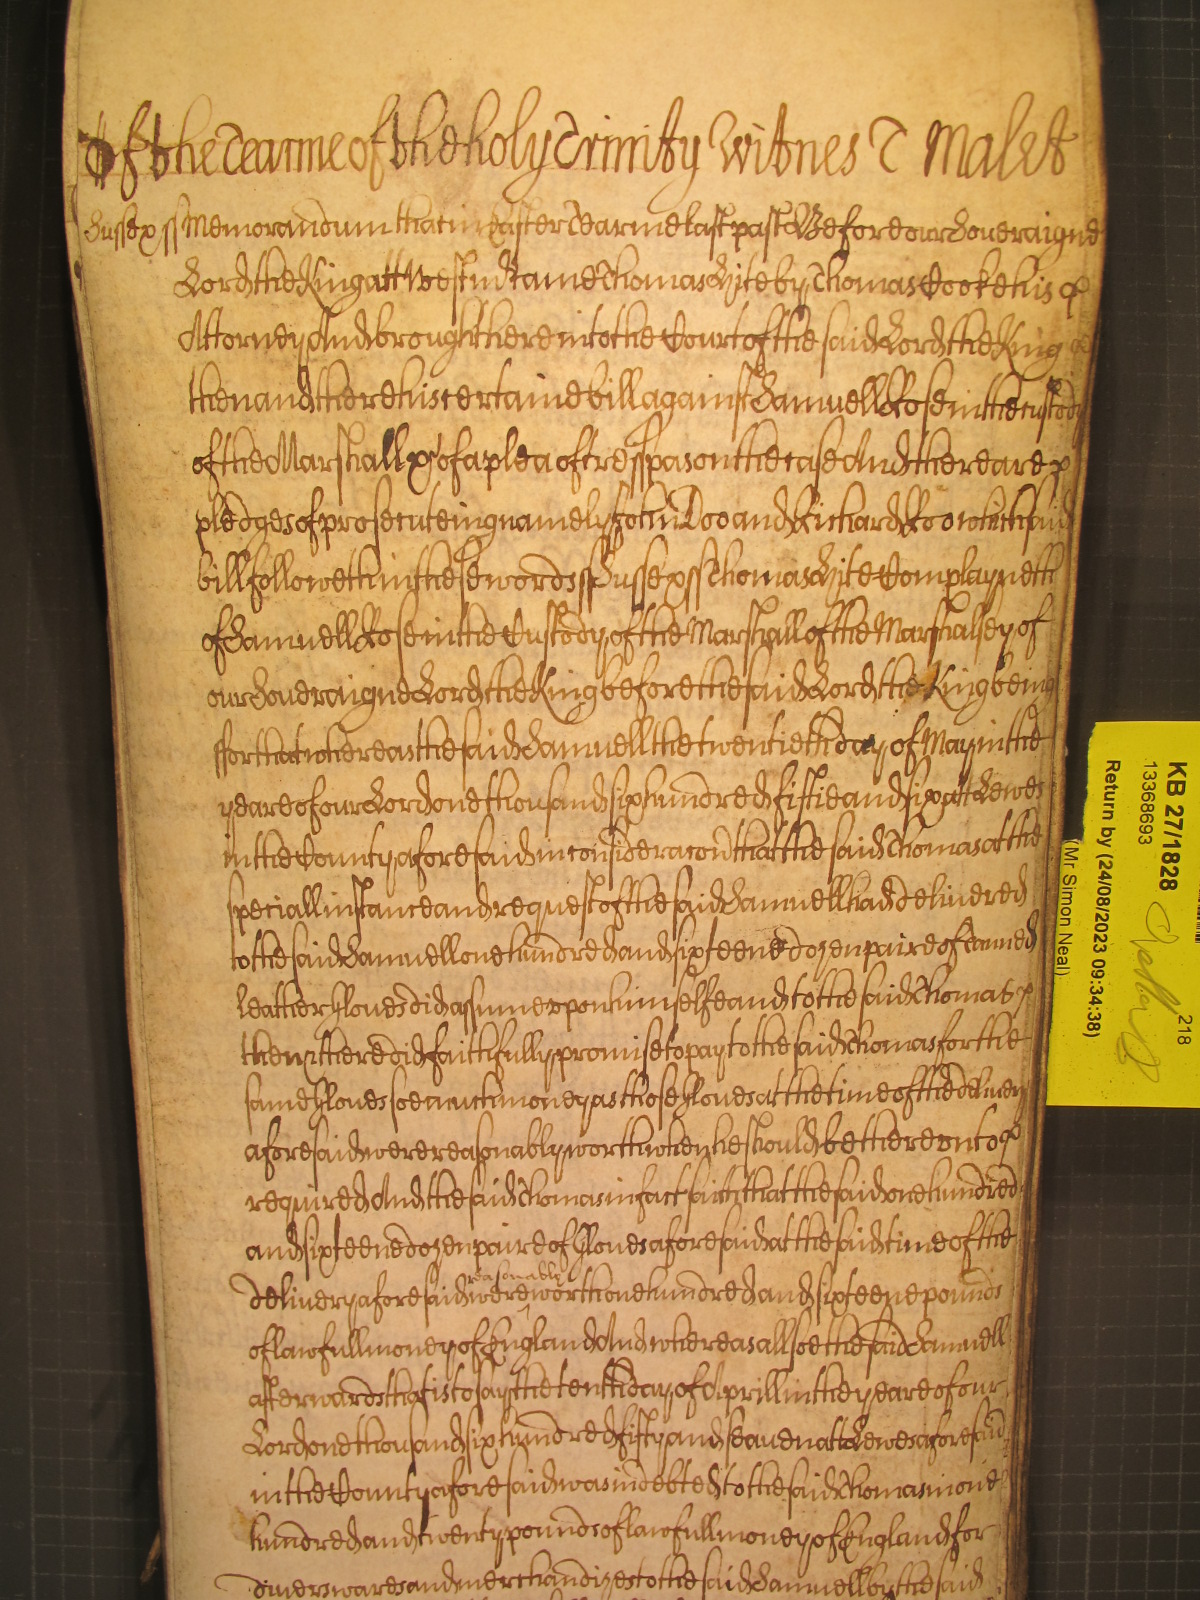 Of the Tearme of the holy Trinity Witnes T Malet
Sussex ss Memorandum that in Easter Tearme last past Before our Soveraigne
Lord the King att Westmr came Thomas by Thomas Cooke his
Attorney And brought here into the Court of the said Lord the King
then and there his certaine bill against Samuell Rose in the custody
of the Marshall &c of a plea of tresspas on the case And there are
pledges of prosecuteing namely John Doo and Richard Roo which said
bill followeth in these words ss Sussex ss Thomas Complayneth
of Samuell Rose in the Custody of the Marshall of the Marshalsey of
our Soveraigne Lord the King before the said Lord the King being
ffor that whereas the said Samuell the twentieth day of May in the
yeare of our Lord one thousand six hundred fiftie and six att Lewes
in the County aforesaid in consideracon that the said Thomas at the
speciall instance and request of the said Samuell had delivered
to the said Samuell one hundred and sixteene dozen paire of tanned
leather Gloves did assume upon himselfe and to the said Thomas
then & there did faithfully promise to pay to the said Thomas for the
same Gloves soe much money as those Gloves at the time of the delivery
aforesaid were reasonably worth when he should be thereunto
required And the said Thomas in fact saith that the said one hundred
and sixteene dozen paire of Gloves aforesaid at the said time of the
delivery aforesaid were reasonably worth one hundred and sixteene pounds
of lawfull money of England And whereas allsoe the said Samuell
afterwards that is to say the tenth day of Aprill in the yeare of our
Lord one thousand six hundred fifty and seaven att Lewes aforesaid
in the County aforesaid was indebted to the said Thomas in one
hundred and twenty pounds of lawfull money of England for
divers wares and merchandizes to the said Samuell by the said
KB 27/1828
13368693
218
Return by (24/08/2023 09:34:38)
(Mr Simon Neal)